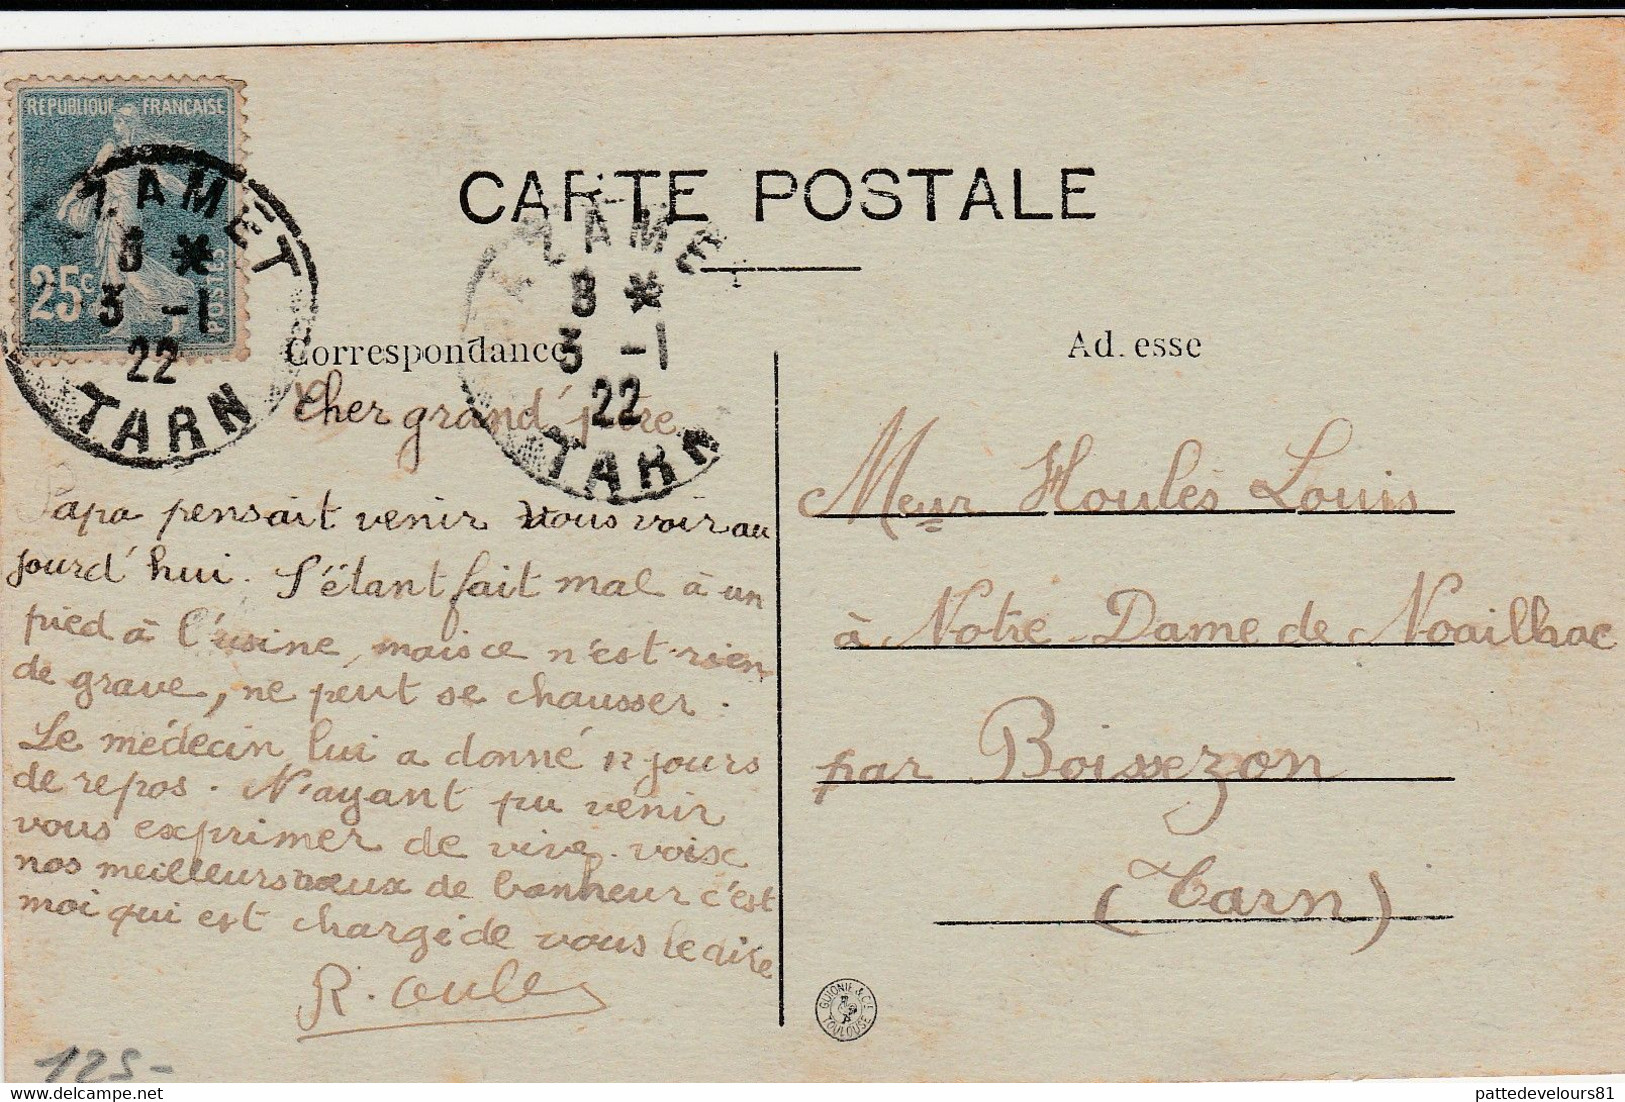 RÉPUBLIQUE FRANÇAISE
25c
POSTES
AZAMET
8 *
3 -1
22
TARN
CARTE POSTALE
AZAMET
8 *
3 -1
22
TARN
Correspondance
Adresse
Cher grand'père
Papa pensait venir vous voir au
jourd'hui. S'étant fait mal à un
pied à l'usine, mais ce n'est rien
de grave, ne peut se chausser.
Le médecin lui a donné 12 jours
de repos. N'ayant pu venir
vous exprimer de vive voix
nos meilleurs vœux de bonheur c'est
moi qui est chargé de vous le dire
R. Oulès
Meur Houlès Louis
à Notre-Dame de Noailhac
par Boissezon
(Tarn)
GUIONIE & Cie
TOULOUSE
125-
pattedevelours81